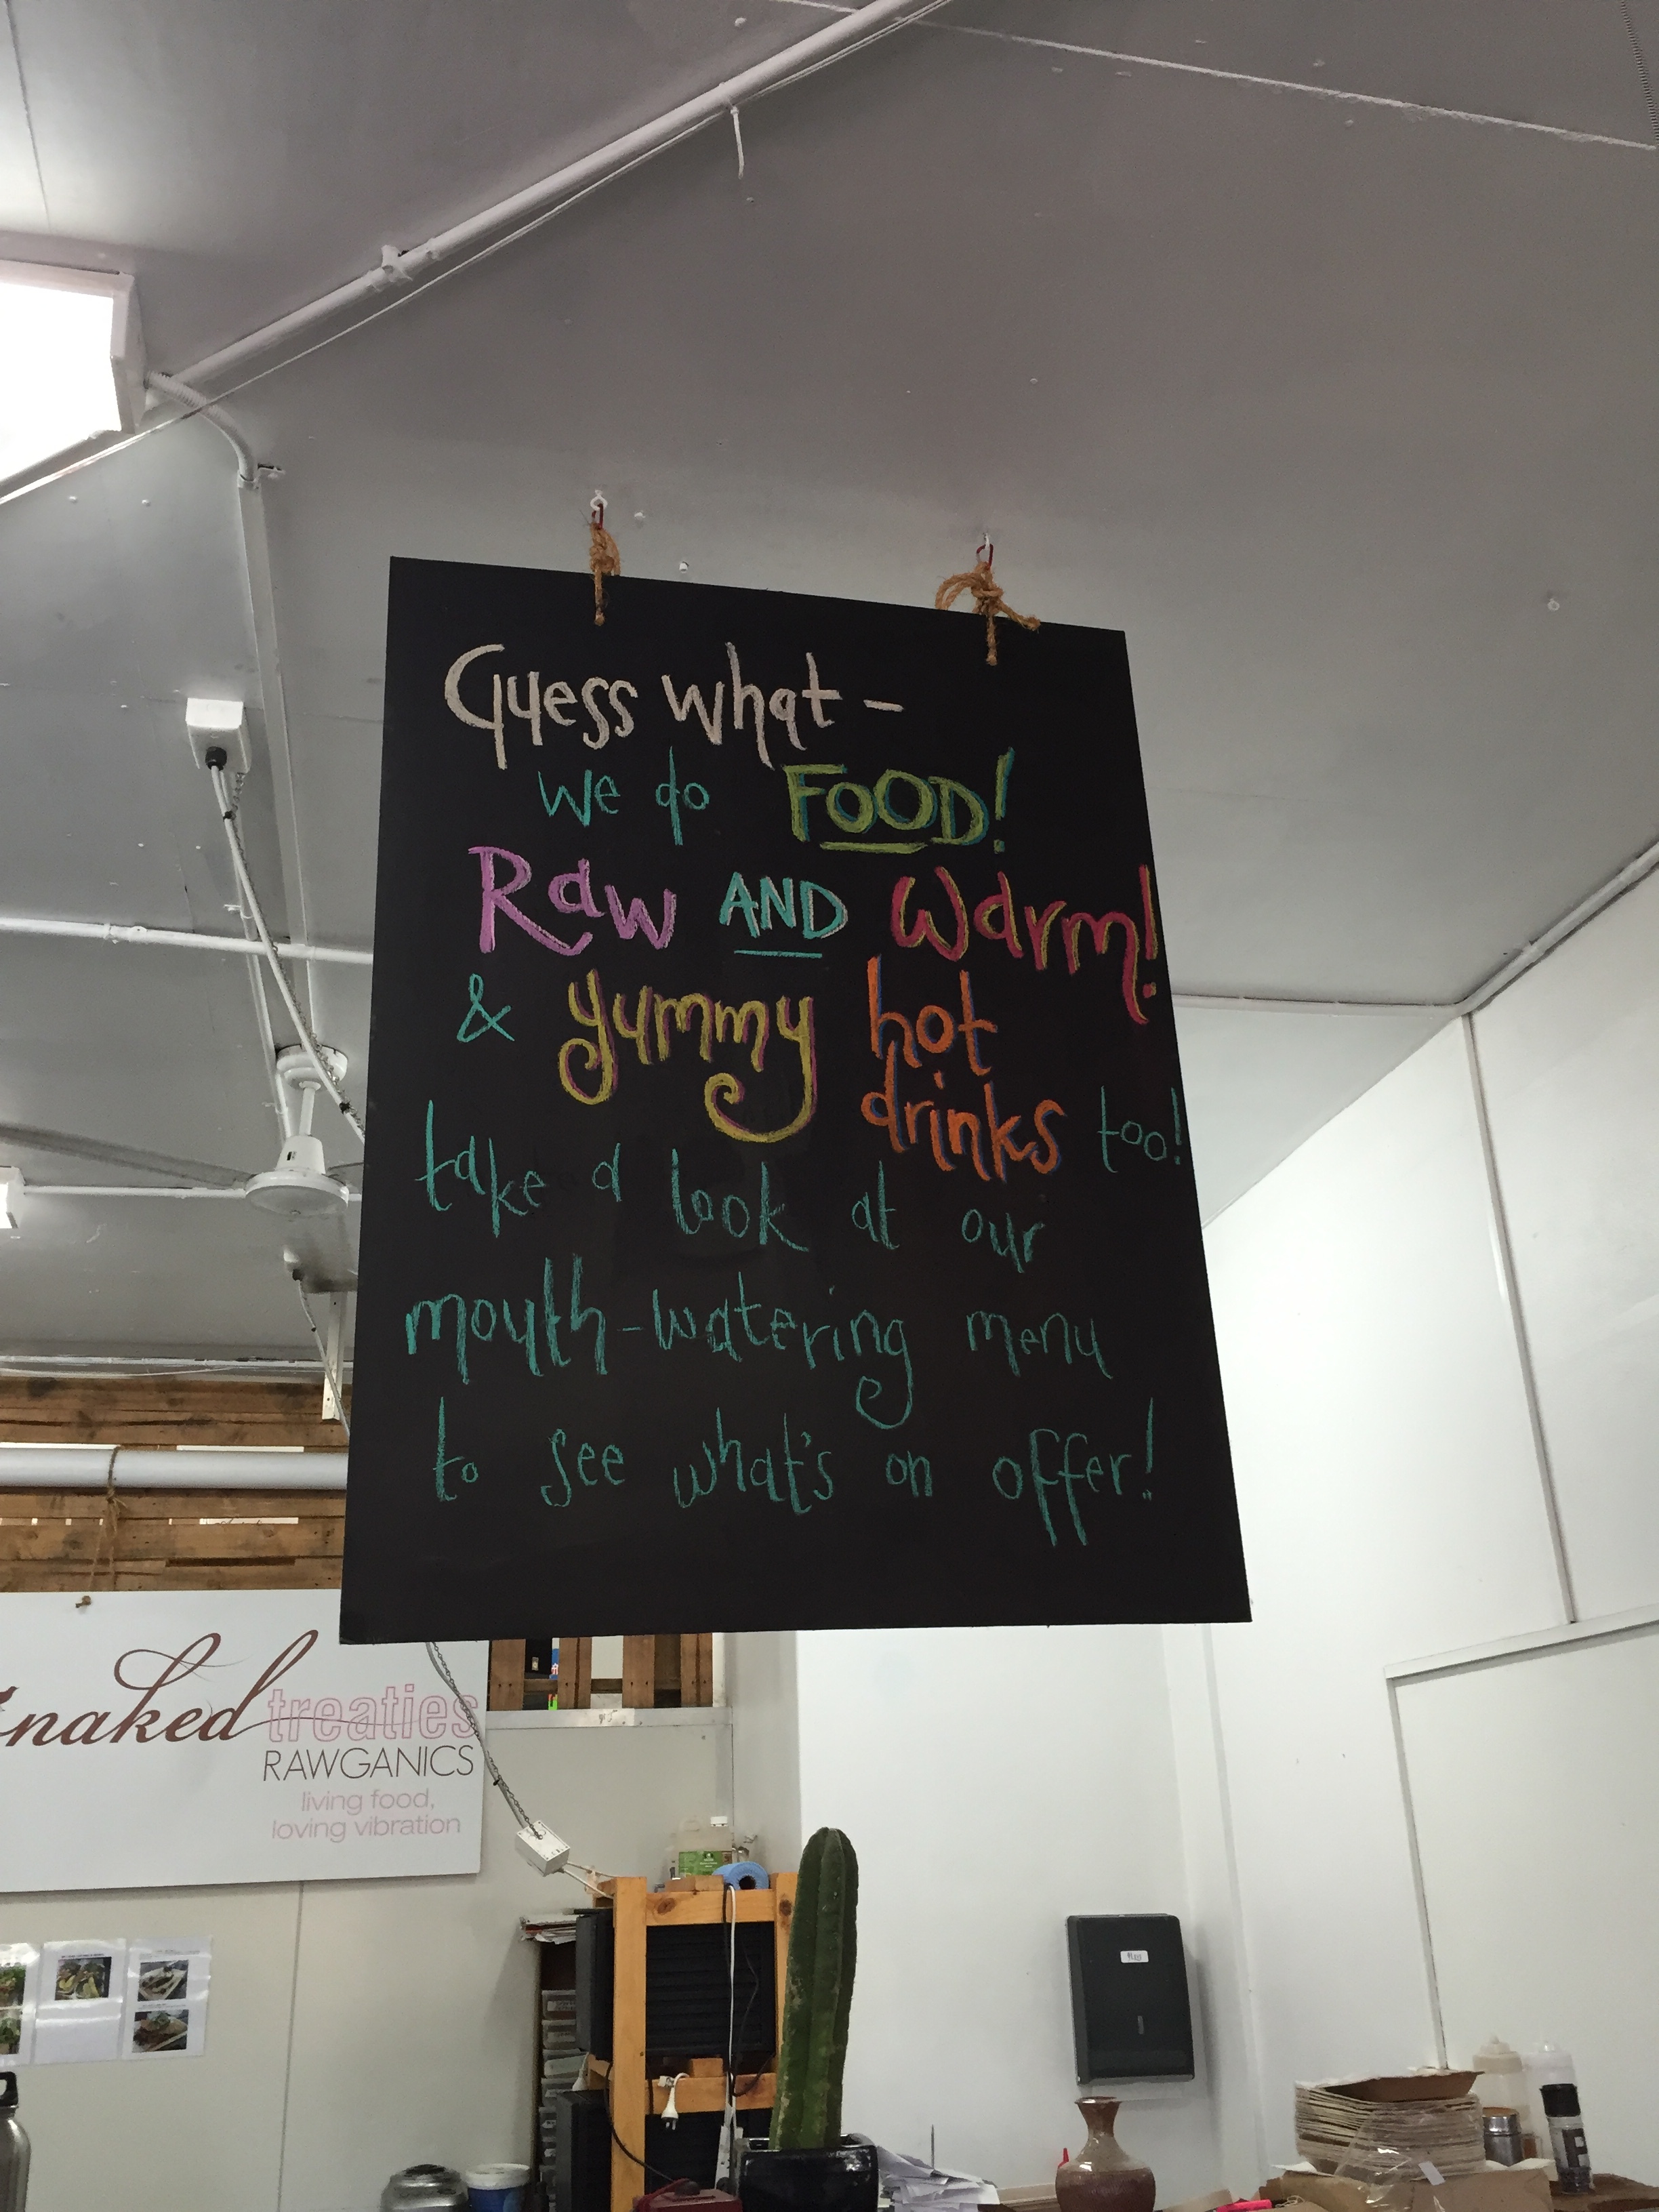 Guess what -
we do FOOD!
Raw AND Warm!
& yummy hot
drinks too!
take a look at our
mouth-watering menu
to see what's on offer!
naked treaties
RAWGANICS
living food,
loving vibration